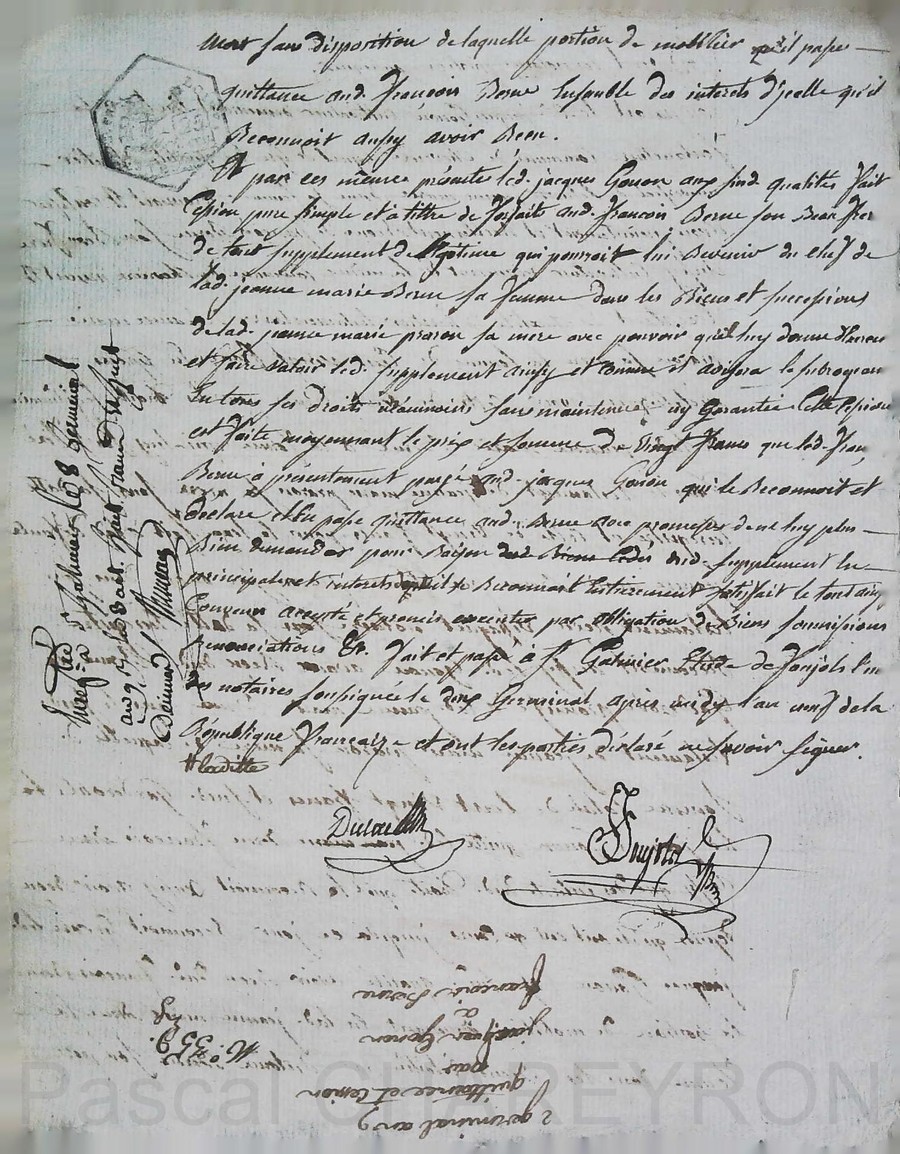 mort sans disposition de laquelle portion de mobilier qu'il passe
quittance aud. François Berne Ensemble des interets d'jcelle qu'il
Reconnoit aussy avoir Recu.
Et par ces mêmes présentes led. jacques Gonon aux susd. qualités fait
Cession pure simple et à titre de forfait aud. francois Berne son Beau frer
de tout supplement de légitime qui pourroit lui Revenir du chef de
lad. jeanne marie Berne sa femme dans les Biens et successions
de lad. jeanne marie sa mere avec pouvoir qu'il luy donne
et faire valoir led. supplement ainsy et comme il avisera le subrogeant
En tous ses droits néanmoins sans maintenue ny Garantie Cette Cession
est faite moyennant le prix et somme de Vingt francs que led. fran
Berne à présentement payé aud. jacques Gonon qui le Reconnoit et
declare et En passe quittance aud. Berne avec promesse de ne luy plus
Rien demander pour Raison des Biens cédés dud. supplement En
principal et interets Reconnoit Entierement satisfait le tout ainsy
Convenu accepté et promis executer par obligation de Biens soumissions
renonciations &c. fait et passé à St Galmier Etude de Poujols l'un
des notaires soussignés le deux Germinal après midy l'an neuf de la
République françaize et ont les parties déclaré ne savoir signer.
laditte
Enregistré à St Galmier le 8 Germinal
an 9
N.o 359.
2 germinal an 9
quittance et cession
par
jacques Gonon
a
francois Berne
Pascal CHEYRON